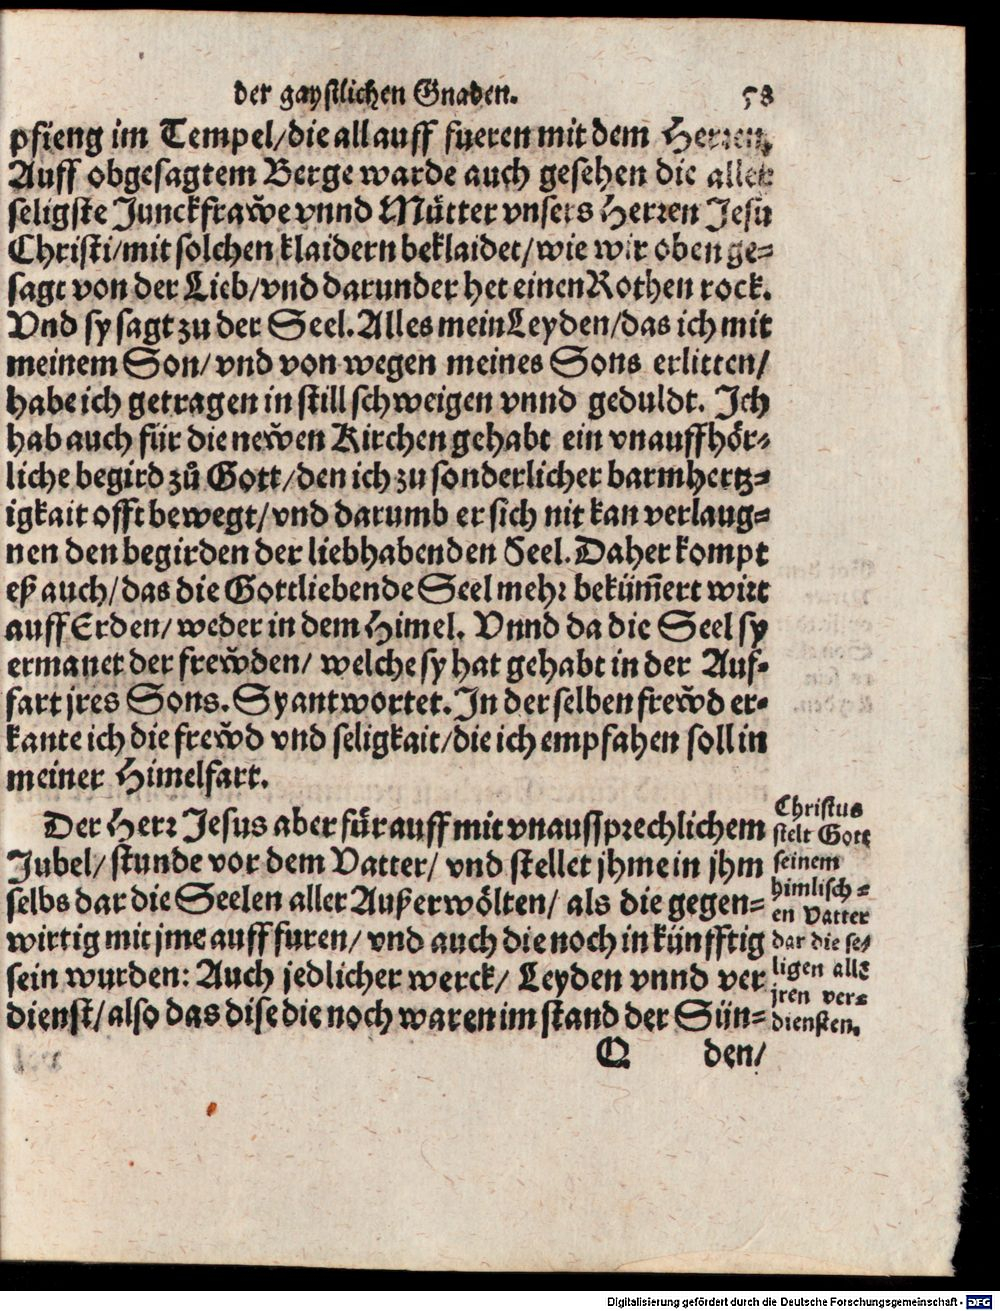 der gaystlichen Gnaden. 58
pfieng im Tempel/die all auff fueren mit dem Herren.
Auff obgesagtem Berge warde auch gesehen die aller
seligste Junckfraw̌e vnnd Můtter vnsers Herren Jesu
Christi/mit solchen klaidern beklaidet/wie wir oben ge⸗
sagt von der Lieb/vnd darunder het einen Rothen rock.
Vnd sy sagt zu der Seel. Alles mein Leyden/das ich mit
meinem Son/vnd von wegen meines Sons erlitten/
habe ich getragen in still schweigen vnnd geduldt. Ich
hab auch für die new̌en Kirchen gehabt ein vnauffhör⸗
liche begird zů Gott/den ich zu sonderlicher barmhertz⸗
igkait offt bewegt/vnd darumb er sich nit kan verlaug⸗
nen den begirden der liebhabenden Seel. Daher kompt
eß auch/das die Gottliebende Seel mehr beküm̃ert wirt
auff Erden/weder in dem Himel. Vnnd da die Seel sy
ermanet der frew̌den/welche sy hat gehabt in der Auf⸗
fart jres Sons. Sy antwortet. In der selben frew̌d er⸗
kante ich die frew̌d vnd seligkait/die ich empfahen soll in
meiner Himelfart.
Der Herr Jesus aber für auff mit vnaussprechlichem
Jubel/stunde vor dem Vatter/vnd stellet jhme in jhm
selbs dar die Seelen aller Außerwölten/als die gegen⸗
wirtig mit jme auff furen/vnd auch die noch in künfftig
sein wurden: Auch jedlicher werck/Leyden vnnd ver
dienst/also das dise die noch waren im stand der Sün⸗
Q den/
Christus
stelt Gott
seinem
himlisch⸗
en Vatter
dar die se⸗
ligen allē
jren ver⸗
diensten.
Digitalisierung gefördert durch die Deutsche Forschungsgemeinschaft - DFG